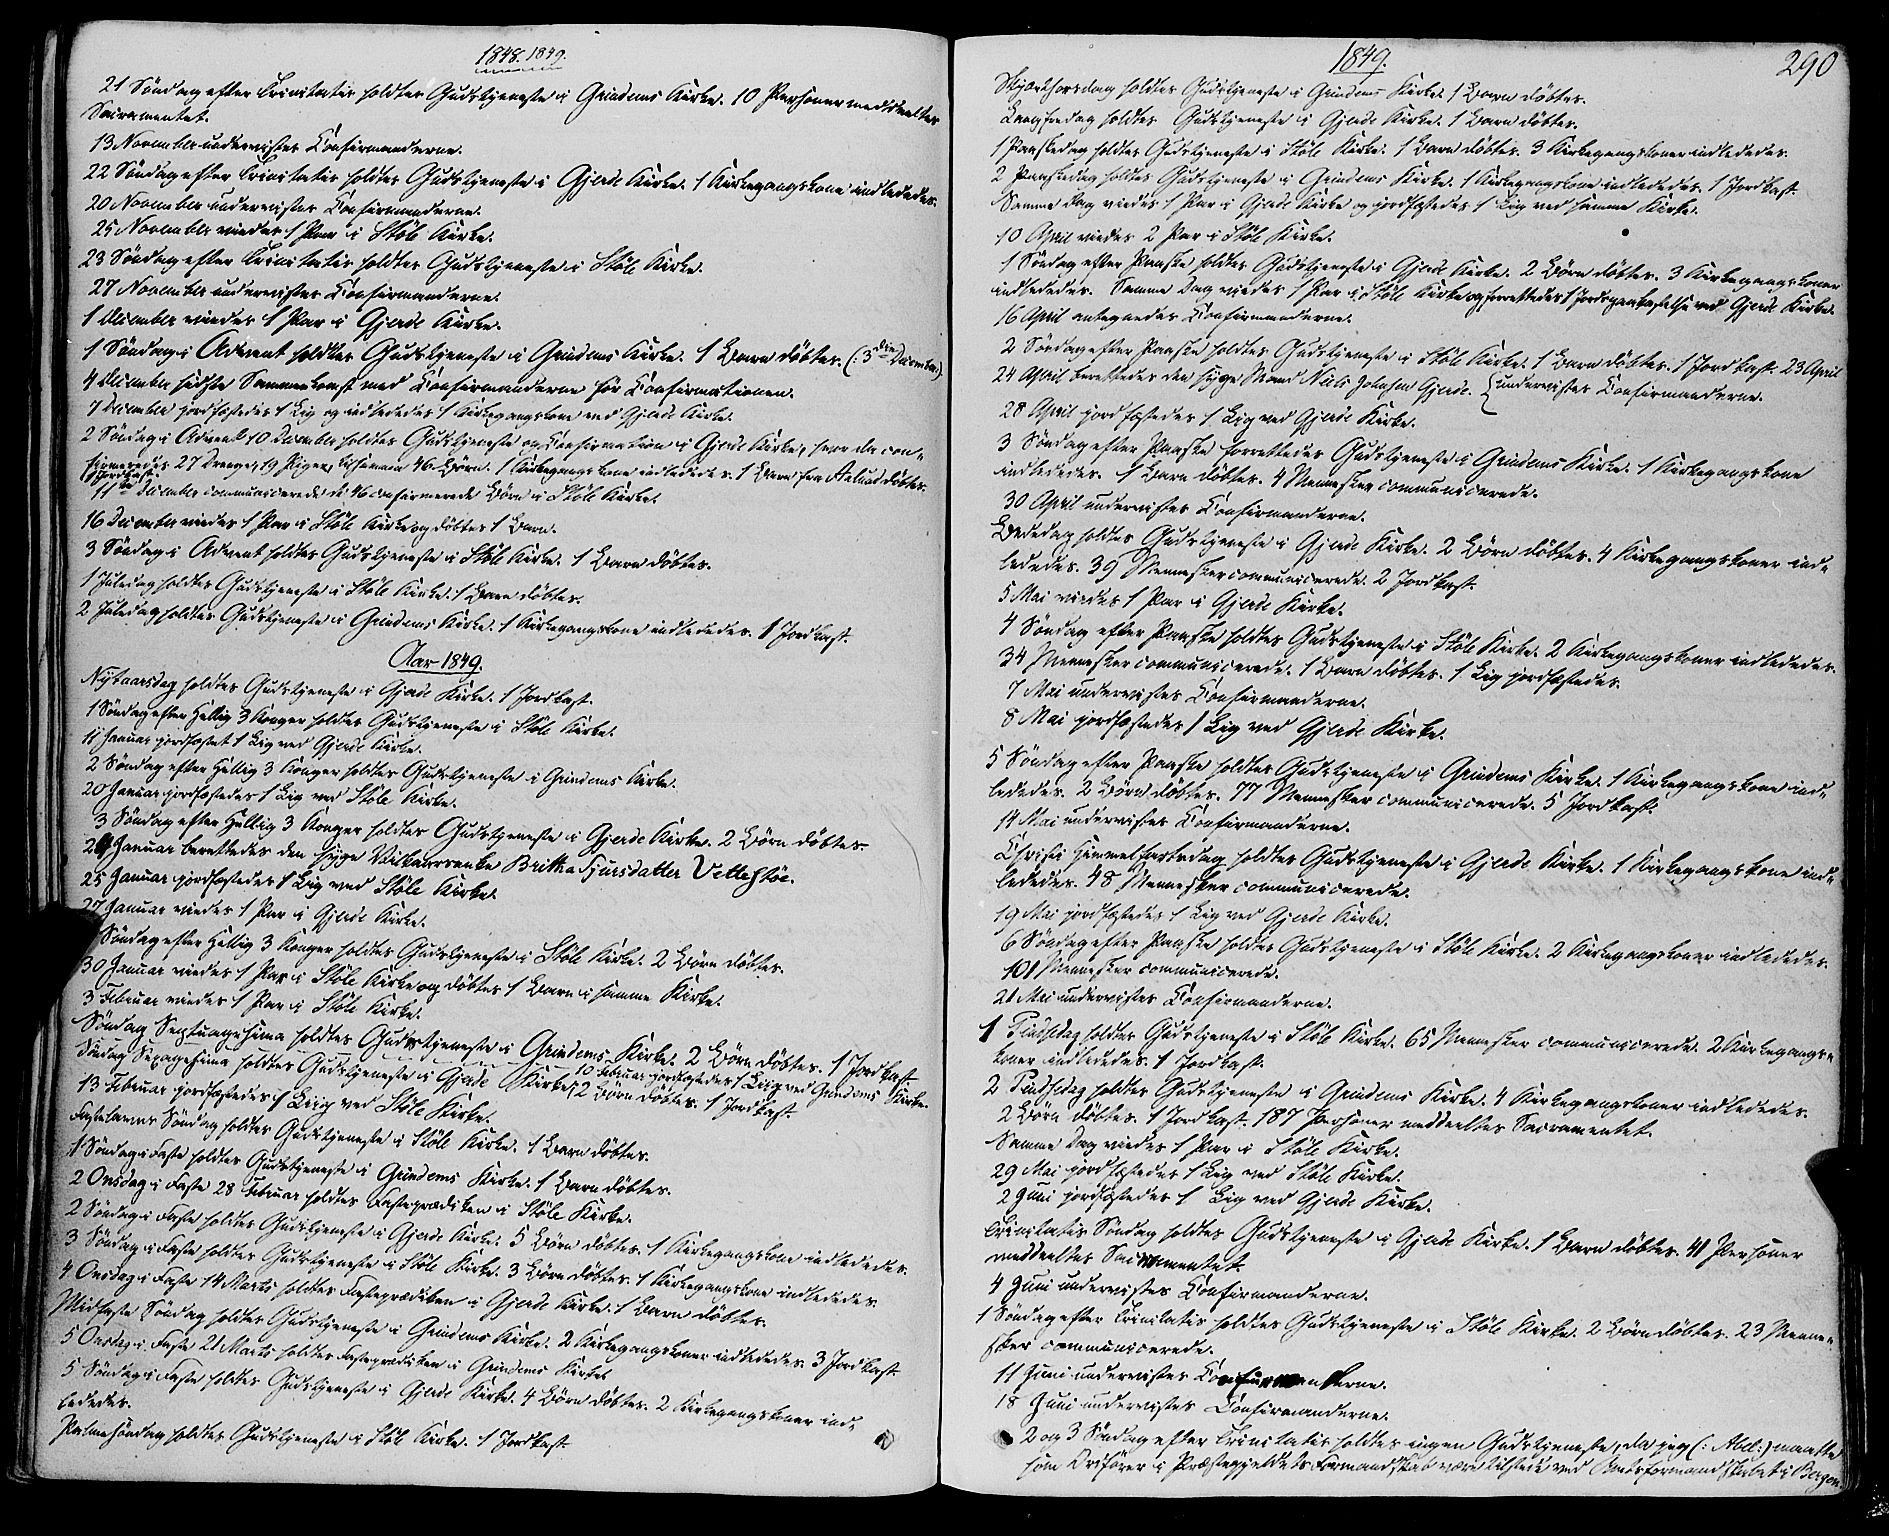 1848. 1849.
21 Søndag efter Trinitatis holdtes Gudstjeneste i Grindems Kirke. 10 Personer meddeeltes
Sacramentet.
13 November undervistes Confirmanderne.
22 Søndag efter Trinitatis holdtes Gudstjeneste i Gjerde Kirke. 1 Kirkegangskone indlededes.
20 November undervistes Confirmanderne.
25 November viedes 1 Par i Støle Kirke.
23 Søndag efter Trinitatis holdtes Gudstjeneste i Støle Kirke.
27 November undervistes Confirmanderne.
1 December viedes 1 Par i Gjerde Kirke.
1 Søndag i Advent holdtes Gudstjeneste i Grindems Kirke. 1 Barn døbtes. (3die December)
4 December sidste Sammenkomst med Confirmanderne før Confirmationen.
7 December jordfæstedes 1 Lig og indlededes 1 Kirkegangskone ved Gjerde Kirke.
2 Søndag i Advent 10 December holdtes Gudstjeneste og Confirmation i Gjerde Kirke, hvor da con-
firmeredes 27 Drenge, 19 Piger, tilsammen 46 Børn. 1 Kirkegangskone indlededes. 1 Barn fra Ølued døbtes.
1 Jordkast.
11te December communicerede de 46 confirmerede Børn i Støle Kirke.
16 December viedes 1 Par i Støle Kirke og døbtes 1 Barn.
3 Søndag i Advent holdtes Gudstjeneste i Støle Kirke. 1 Barn døbtes.
1 Juledag holdtes Gudstjeneste i Støle Kirke. 1 Barn døbtes.
2 Juledag holdtes Gudstjeneste i Grindems Kirke. 1 Kirkegangskone indlededes. 1 Jordkast.
Aar 1849.
Nytaarsdag holdtes Gudstjeneste i Gjerde Kirke. 1 Jordkast.
1 Søndag efter Hellig 3 Konger holdtes Gudstjeneste i Støle Kirke.
11 Januar jordfæstet 1 Lig ved Gjerde Kirke.
2 Søndag efter Hellig 3 Konger holdtes Gudstjeneste i Grindems Kirke.
20 Januar jordfæstedes 1 Lig ved Støle Kirke.
3 Søndag efter Hellig 3 Konger holdtes Gudstjeneste i Gjerde Kirke. 2 Børn døbtes
24 Januar berettedes den syge Vilkaarsenke Britha Sjursdatter Vettestøe.
25 Januar jordfæstedes 1 Lig ved Støle Kirke.
27 Januar viedes 1 Par i Gjerde Kirke.
Søndag efter Hellig 3 Konger holdtes Gudstjeneste i Støle Kirke. 2 Børn døbtes.
30 Januar viedes 1 Par i Støle Kirke og døbtes 1 Barn i samme Kirke.
3 Februar viedes 1 Par i Støle Kirke.
Søndag Septuagesima holdtes Gudstjeneste i Grindems Kirke. 2 Børn døbtes. 1 Jordkast
10 Februar jordfæstedes 1 Liig ved Grindems Kirke.
Søndag Sexagesima holdtes Gudstjeneste i Gjerde Kirke. 2 Børn døbtes. 1 Jordkast.
13 Februar jordfæstedes 1 Liig ved Støle Kirke.
Fastelavns Søndag holdtes Gudstjeneste i Støle Kirke. 1 Barn døbtes.
1 Søndag i Faste holdtes Gudstjeneste i Grindems Kirke. 1 Barn døbtes.
2 Onsdag i Faste 28 Februar holdtes Fasteprædiken i Støle Kirke.
2 Søndag i Faste holdtes Gudstjeneste i Gjerde Kirke. 5 Børn døbtes. 1 Kirkegangskone indlededes.
3 Søndag i Faste holdtes Gudstjeneste i Støle Kirke. 3 Børn døbtes. 1 Kirkegangskone indlededes.
4 Onsdag i Faste 14 Marts holdtes Fasteprædiken i Gjerde Kirke. 1 Barn døbtes.
Midfaste Søndag holdtes Gudstjeneste i Grindems Kirke. 2 Kirkegangskoner indlededes. 3 Jordkast
5 Onsdag i Faste 21 Marts holdtes Fasteprædiken i Grindems Kirke.
5 Søndag i Faste holdtes Gudstjeneste i Gjerde Kirke. 4 Børn døbtes. 2 Kirkegangskoner ind-
lededes.
Palmesøndag holdtes Gudstjeneste i Støle Kirke. 1 Jordkast.
1849.
290
Skjærthorsdag holdtes Gudstjeneste i Grindems Kirke. 1 Barn døbtes.
Langfredag holdtes Gudstjeneste i Gjerde Kirke. 1 Barn døbtes.
1 Paaskedag holdtes Gudstjeneste i Støle Kirke. 1 Barn døbtes. 3 Kirkegangskoner indlededes.
2 Paaskedag holdtes Gudstjeneste i Grindems Kirke. 1 Kirkegangskone indlededes. 1 Jordkast.
Samme Dag viedes 1 Par i Gjerde Kirke og jordfæstedes 1 Lig ved samme Kirke.
10 April viedes 2 Par i Støle Kirke.
1 Søndag efter Paaske holdtes Gudstjeneste i Gjerde Kirke. 2 Børn døbtes. 3 Kirkegangskoner
indlededes. Samme Dag viedes 1 Par i Støle Kirke og forrettedes 1 Jordspaakastelse ved Gjerde Kirke.
16 April antegnedes Confirmanderne.
2 Søndag efter Paaske holdtes Gudstjeneste i Støle Kirke. 1 Barn døbtes. 1 Jordkast. 23 April
24 April berettedes den syge Mand Niels Johnsen Gjerde. { undervistes Confirmanderne.
28 April jordfæstedes 1 Lig ved Gjerde Kirke.
3 Søndag efter Paaske forrettedes Gudstjeneste i Grindems Kirke. 1 Kirkegangskone
indlededes. 1 Barn døbtes. 4 Mennesker communicerede.
30 April undervistes Confirmanderne.
Bededag holdtes Gudstjeneste i Gjerde Kirke. 2 Børn døbtes. 4 Kirkegangskoner ind-
lededes. 39 Mennesker communicerede. 2 Jordkast.
5 Mai viedes 1 Par i Gjerde Kirke.
4 Søndag efter Paaske holdtes Gudstjeneste i Støle Kirke. 2 Kirkegangskoner indlededes.
34 Mennesker communicerede. 1 Barn døbtes. 1 Lig jordfæstedes.
7 Mai undervistes Confirmanderne.
8 Mai jordfæstedes 1 Lig ved Gjerde Kirke.
5 Søndag efter Paaske holdtes Gudstjeneste i Grindems Kirke. 1 Kirkegangskone ind-
lededes. 2 Børn døbtes. 77 Mennesker communicerede. 5 Jordkast.
14 Mai undervistes Confirmanderne.
Christi Himmelfartsdag holdtes Gudstjeneste i Gjerde Kirke. 1 Kirkegangskone ind-
lededes. 48 Mennesker communicerede.
19 Mai jordfæstedes 1 Lig ved Gjerde Kirke.
6 Søndag efter Paaske holdtes Gudstjeneste i Støle Kirke. 2 Kirkegangskoner indlededes.
101 Mennesker communicerede.
21 Mai undervistes Confirmanderne.
1 Pindsedag holdtes Gudstjeneste i Støle Kirke. 65 Mennesker communicerede. 2 Kirkegangs-
koner indlededes. 1 Jordkast.
2 Pindsedag holdtes Gudstjeneste i Grindems Kirke. 4 Kirkegangskoner indlededes.
2 Børn døbtes. 1 Jordkast. 187 Personer meddeeltes Sacramentet.
Samme Dag viedes 1 Par i Støle Kirke.
29 Mai jordfæstedes 1 Lig ved Støle Kirke.
2 Juni jordfæstedes 1 Lig ved Gjerde Kirke.
Trinitatis Søndag holdtes Gudstjeneste i Gjerde Kirke. 1 Barn døbtes. 41 Personer
meddeeltes Sacramentet.
4 Juni undervistes Confirmanderne.
1 Søndag efter Trinitatis holdtes Gudstjeneste i Støle Kirke. 2 Børn døbtes. 23 Menne-
sker communicerede.
11 Juni undervistes Confirmanderne.
18 Juni undervistes Confirmanderne.
2 og 3 Søndag efter Trinitatis holdtes ingen Gudstjeneste, da jeg (: Abel:) maatte
som Ordfører i Præstegjeldets Formandskab være tilstede ved Amtsformandskabet i Bergen.